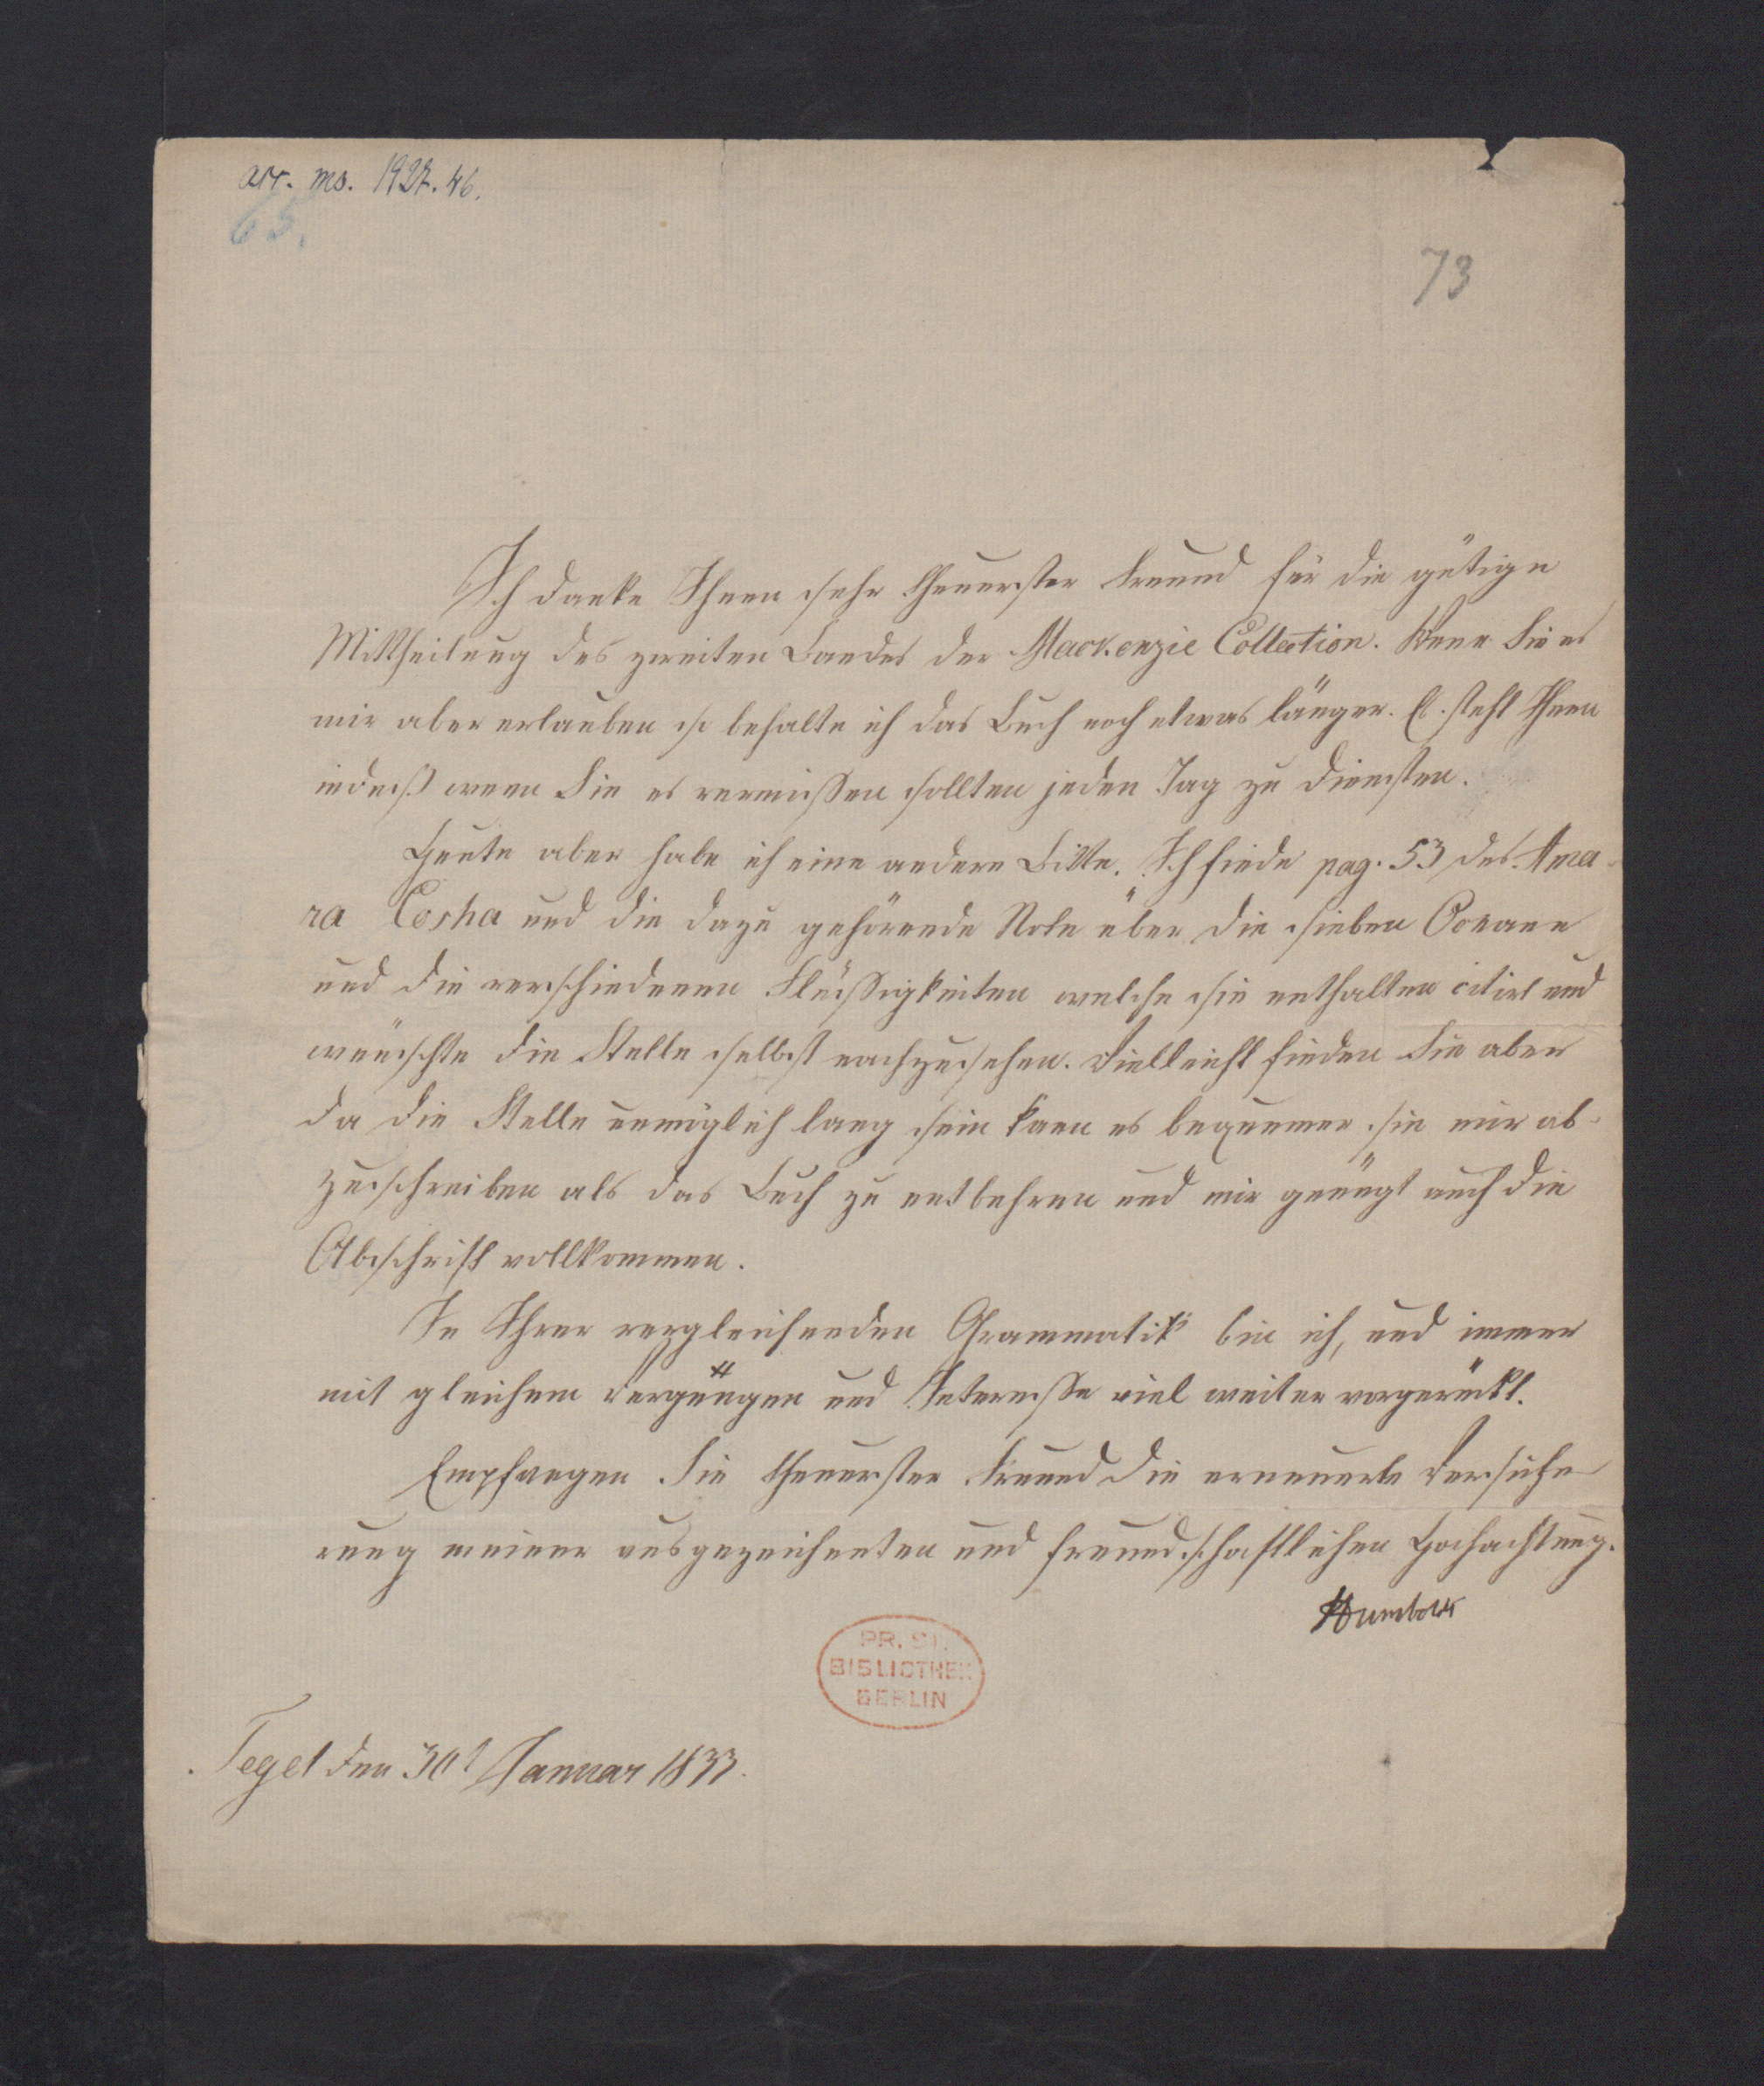 acc. ms. 1927. 46.
65.
73
Ich danke Ihnen sehr theuerster Freund für die gütige
Mittheilung des zweiten Bandes der Mackenzie Collection. Wenn Sie es
mir aber erlauben so behalte ich das Buch noch etwas länger. Es steht Ihnen
indeß wenn Sie es vermissen sollten jeden Tag zu Diensten.
Heute aber habe ich eine andere Bitte. Ich finde pag. 53 des Ama-
ra Cosha und die dazu gehörende Note über die sieben Oceane
und die verschiedenen Flüssigkeiten welche sie enthalten citirt und
wünschte die Stelle selbst nachzusehen. Vielleicht finden Sie aber
da die Stelle unmöglich lang sein kann es bequemer sie mir ab-
zuschreiben als das Buch zu entbehren und mir genügt auch die
Abschrift vollkommen.
In Ihrer vergleichenden Grammatik bin ich, und immer
mit gleichem Vergnügen und Interesse viel weiter vorgerückt.
Empfangen Sie theuerster Freund die erneuerte Versiche
rung meiner ausgezeichneten und freundschaftlichen Hochachtung.
Humboldt
PR. ST.
BIBLIOTHEK
BERLIN
Tegel den 30t Januar 1833.